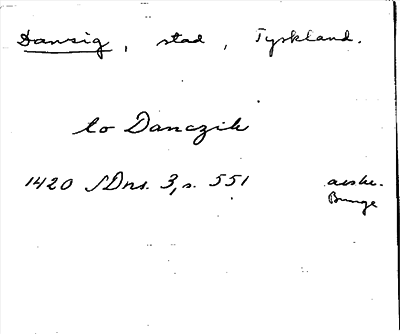 Danzig, stad, Tyskland.
to Danczik
1420 SDns. 3, s. 551
avskr.
Bunge